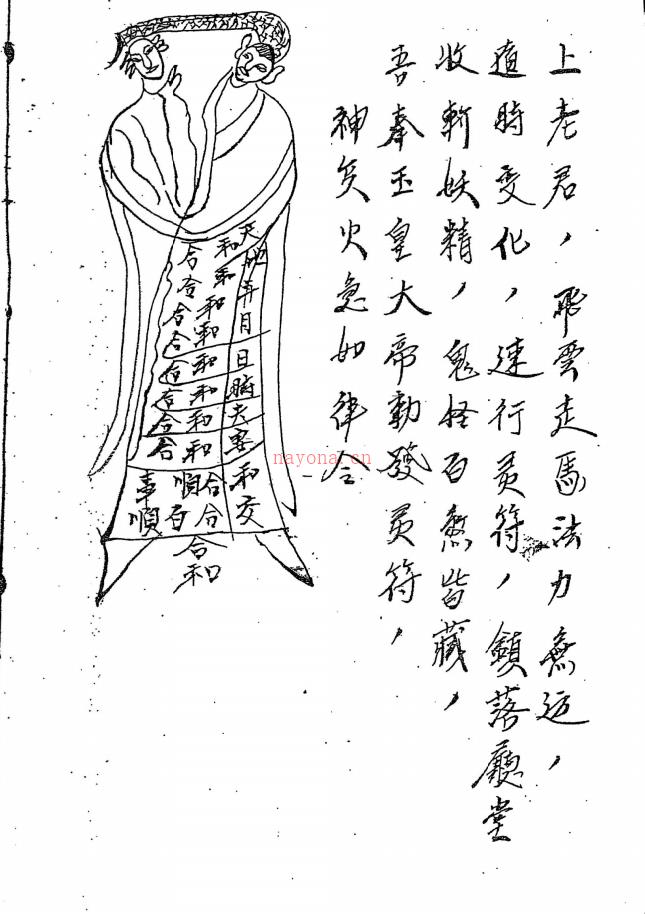 上老君，飛雲走馬法力無边，
適時变化，速行灵符，鎮落廳堂
收斬妖精，鬼怪百煞皆藏，
吾奉玉皇大帝勅發灵符，
神兵火急如律令
天地年月日時夫妻和交
和和和和和和和和合合
合合合合合合合合順百
事順
合和
nayona.cn